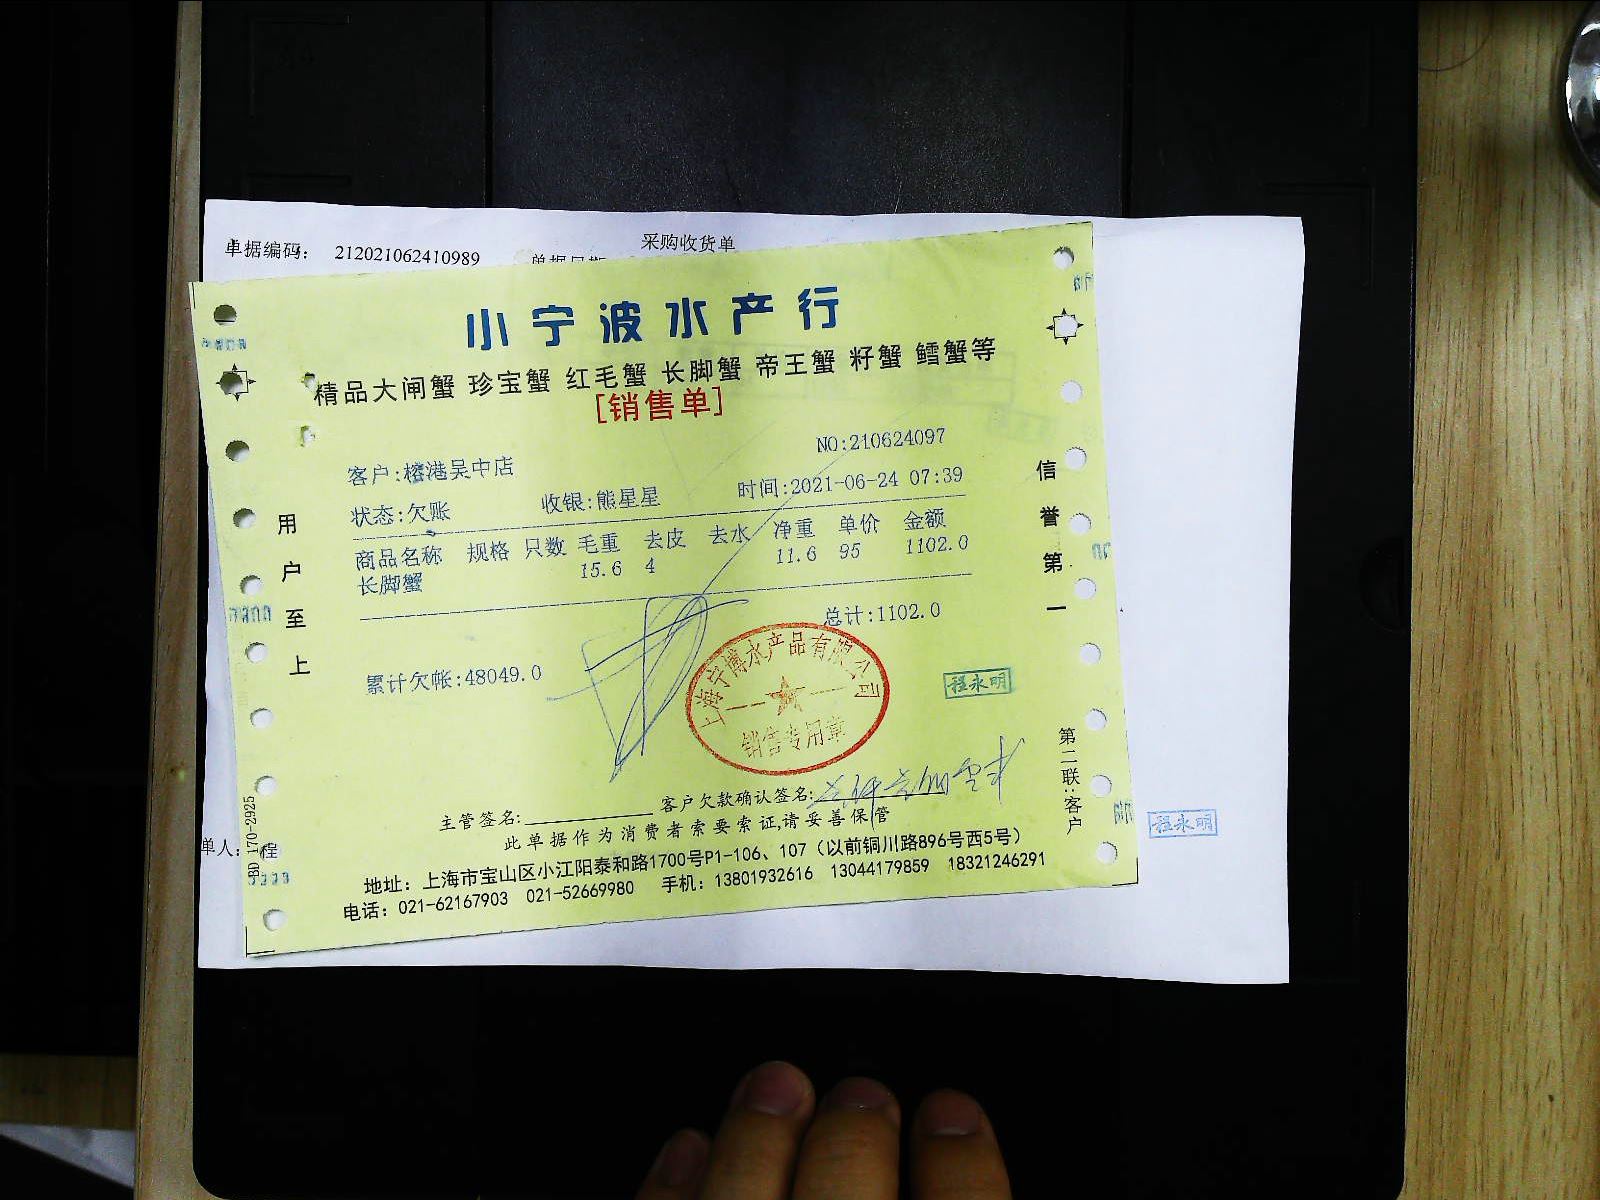 采购收货单
单据编码： 212021062410989
小宁波水产行
精品大闸蟹 珍宝蟹 红毛蟹 长脚蟹 帝王蟹 籽蟹 鳕蟹等
[销售单]
NO:210624097
客户:榕港吴中店
状态:欠账 收银:熊星星 时间:2021-06-24 07:39
商品名称 规格 只数 毛重 去皮 去水 净重 单价 金额
长脚蟹 15.6 4 11.6 95 1102.0
总计:1102.0
累计欠帐:48049.0
用户至上
信誉第一
上海宁博水产品有限公司
销售专用章
程永明
第二联:客户
主管签名: 客户欠款确认签名:
此单据作为消费者索要索证,请妥善保管
地址：上海市宝山区小江阳泰和路1700号P1-106、107（以前铜川路896号西5号）
电话：021-62167903 021-52669980 手机：13801932616 13044179859 18321246291
BD 170-2925
单人： 程
程永明